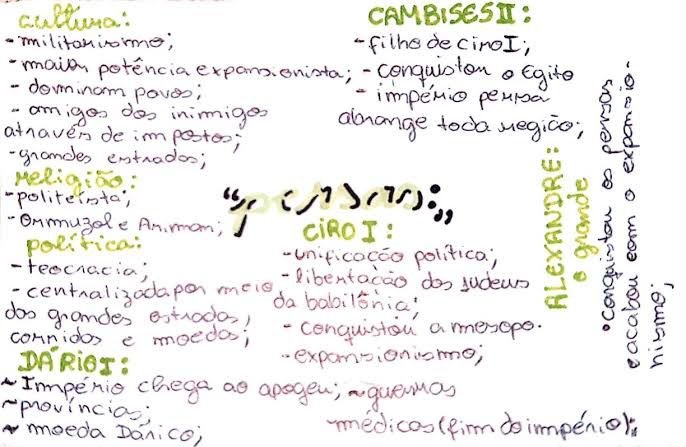 cultura:
- militarismo;
- maior potência expansionista;
- dominam povos;
- amigos dos inimigos
através de impostos;
- grandes estradas;
religião:
- politeísta;
- Ormuzol e Ariman;
política:
- teocracia;
- centralizada por meio
das grandes estradas,
corridos e moedas;
DÁRIO I:
~ Império chega ao apogeu; ~ guerras
~ províncias;
médicas (fim do império);
~ moeda Dárico;
"persas:"
CAMBISES II:
- filho de ciro I;
- conquistou o Egito
- império persa
abrange toda região;
CIRO I:
- unificação política;
- libertação dos judeus
da babilônia;
- conquistou a mesopo.
- expansionismo;
ALEXANDRE:
o grande
• conquistou os persas
e acabou com o expansio-
nismo;